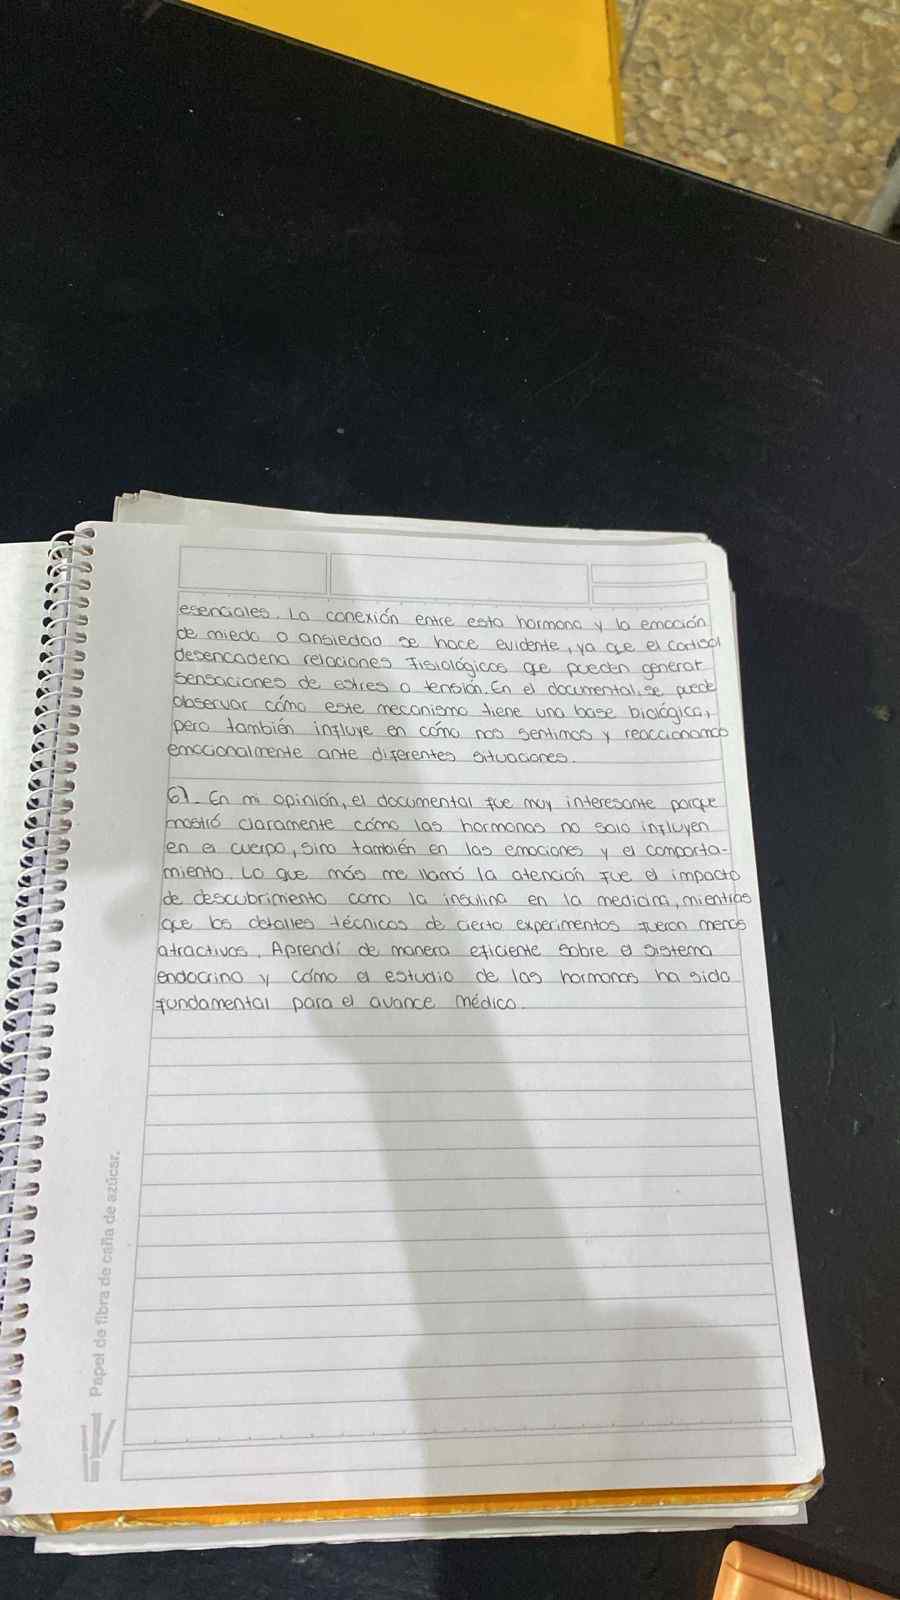 esenciales. La conexión entre esta hormona y la emoción
de miedo o ansiedad se hace evidente, ya que el cortisol
desencadena relaciones fisiológicas que pueden generar
sensaciones de estres o tensión. En el documental, se puede
observar cómo este mecanismo tiene una base biológica,
pero también influye en cómo nos sentimos y reaccionamos
emocionalmente ante diferentes situaciones.
6). En mi opinión, el documental fue muy interesante porque
mostró claramente cómo las hormonas no solo influyen
en el cuerpo, sino también en las emociones y el comporta-
miento. Lo que más me llamó la atención fue el impacto
de descubrimento como la insulina en la medicina, mientras
que los detalles técnicos de cierto experimentos fueron menos
atractivos. Aprendí de manera eficiente sobre el sistema
endocrino y cómo el estudio de las hormonas ha sido
fundamental para el avance médico.
Papel de fibra de caña de azúcar.